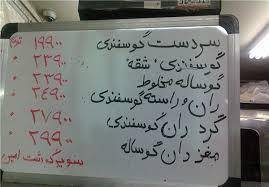 سردست گوسفندی ۱۹۹۰۰
گوسفندی شقه ۲۳۹۰۰
گوساله مخلوط ۲۳۹۰۰
ران و راسته گوسفندی ۲۴۹۰۰
گردران گوسفندی ۲۷۹۰۰
مغز ران گوساله ۲۹۹۰۰
سوپر گوشت امین